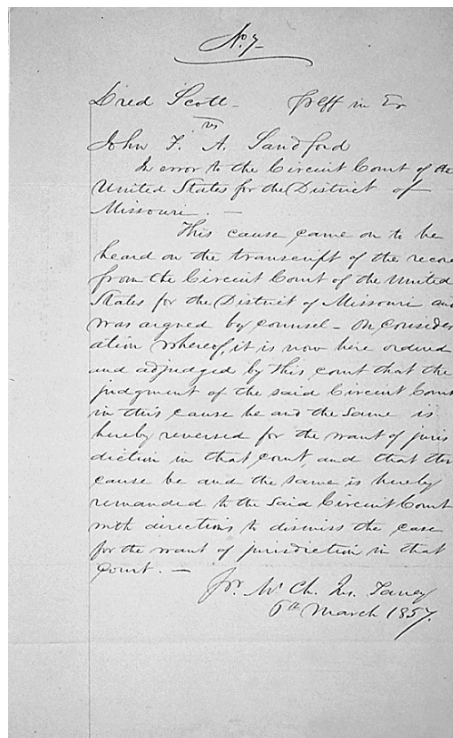 No. 7
Dred Scott - Plff in Er
vs
John F. A. Sandford
In error to the Circuit Court of the
United States for the District of
Missouri. -
This cause came on to be
heard on the transcript of the recor
from the Circuit Court of the United
States for the District of Missouri and
was argued by counsel - On consider
ation whereof, it is now here ordered
and adjudged by this court that the
judgment of the said Circuit Court
in this cause be and the same is
hereby reversed for the want of juris
diction in that court, and that this
cause be and the same is hereby
remanded to the said Circuit Court
with directions to dismiss the case
for the want of jurisdiction in that
court. -
pr. Mr. Ch. Jus. Taney
6th March 1857.